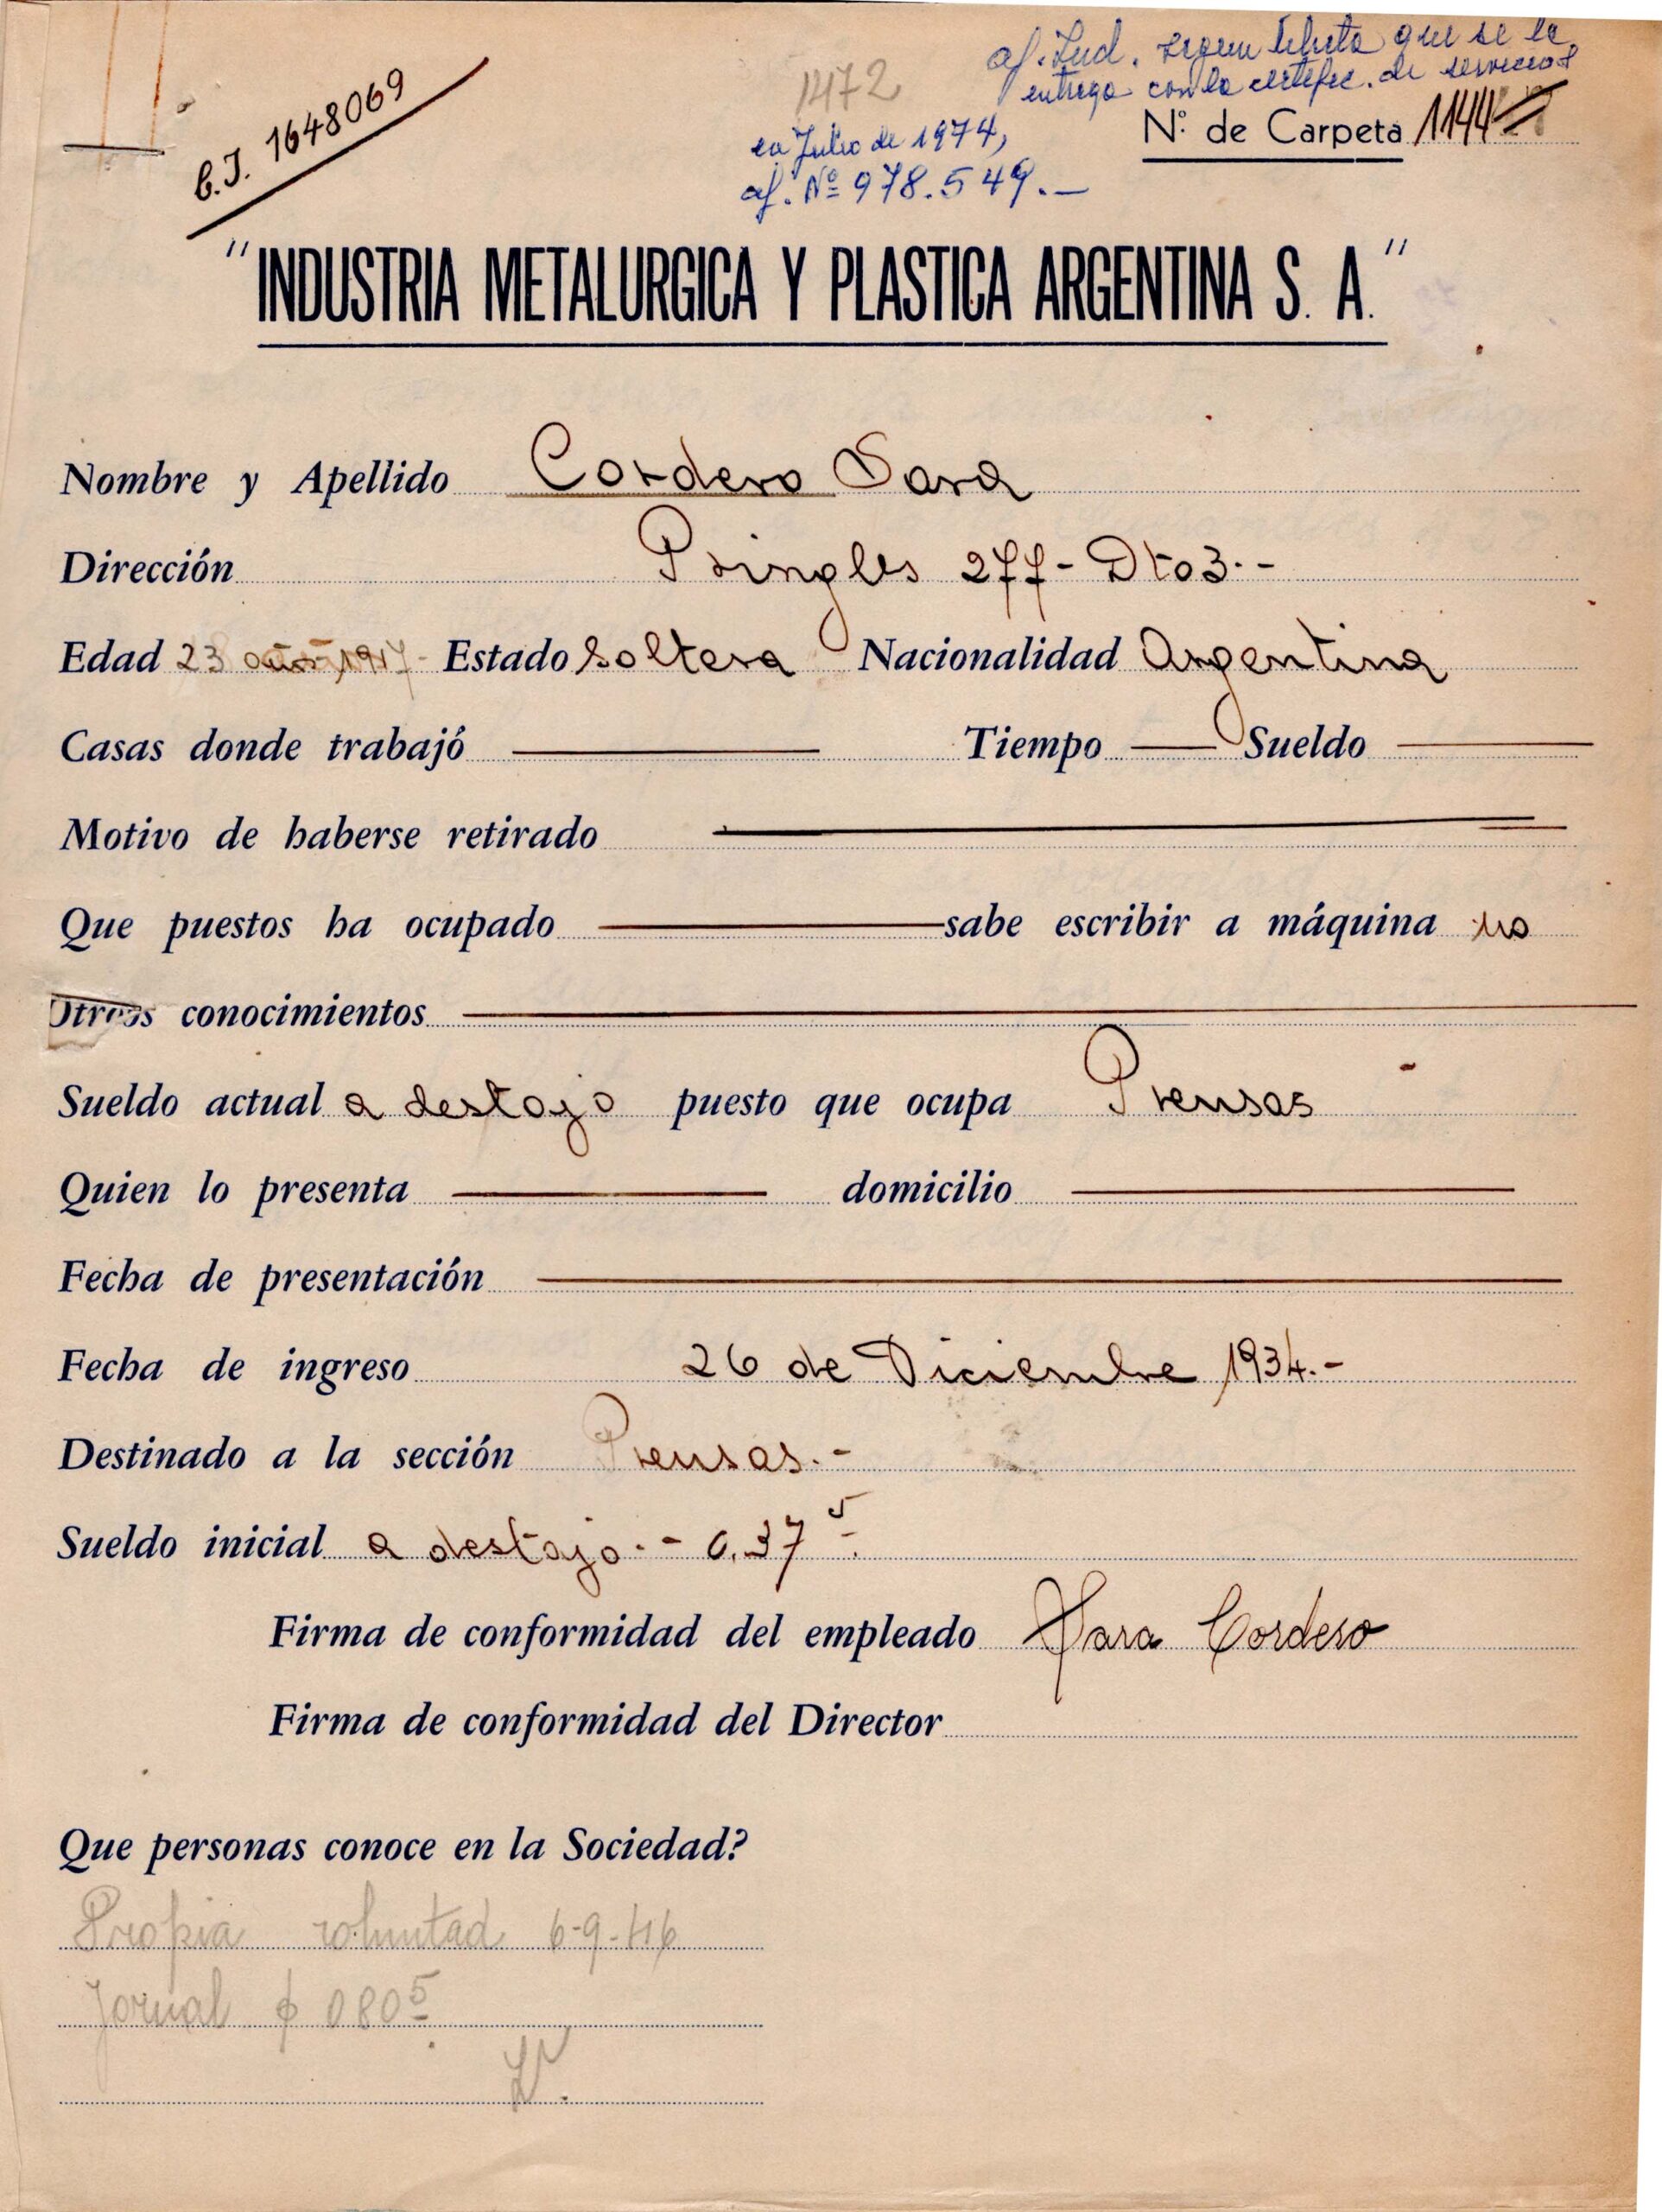 af. Ind. segun libreta que se le
entrego con la certific. de servicios
1472
C.I. 1648069
en Julio de 1974,
Nº de Carpeta 1144
af. Nº 978.549.—
"INDUSTRIA METALURGICA Y PLASTICA ARGENTINA S. A."
Nombre y Apellido Cordero Sara
Dirección Pringles 277 - Dto 3.-
Edad 23 años Estado soltera Nacionalidad Argentina
Casas donde trabajó Tiempo Sueldo
Motivo de haberse retirado
Que puestos ha ocupado sabe escribir a máquina no
Otros conocimientos
Sueldo actual a destajo puesto que ocupa Prensas
Quien lo presenta domicilio
Fecha de presentación
Fecha de ingreso 26 de Diciembre 1934.-
Destinado a la sección Prensas.-
Sueldo inicial a destajo.- 0.37 5
Firma de conformidad del empleado Sara Cordero
Firma de conformidad del Director
Que personas conoce en la Sociedad?
Propia voluntad 6-9-46
Jornal $ 0805